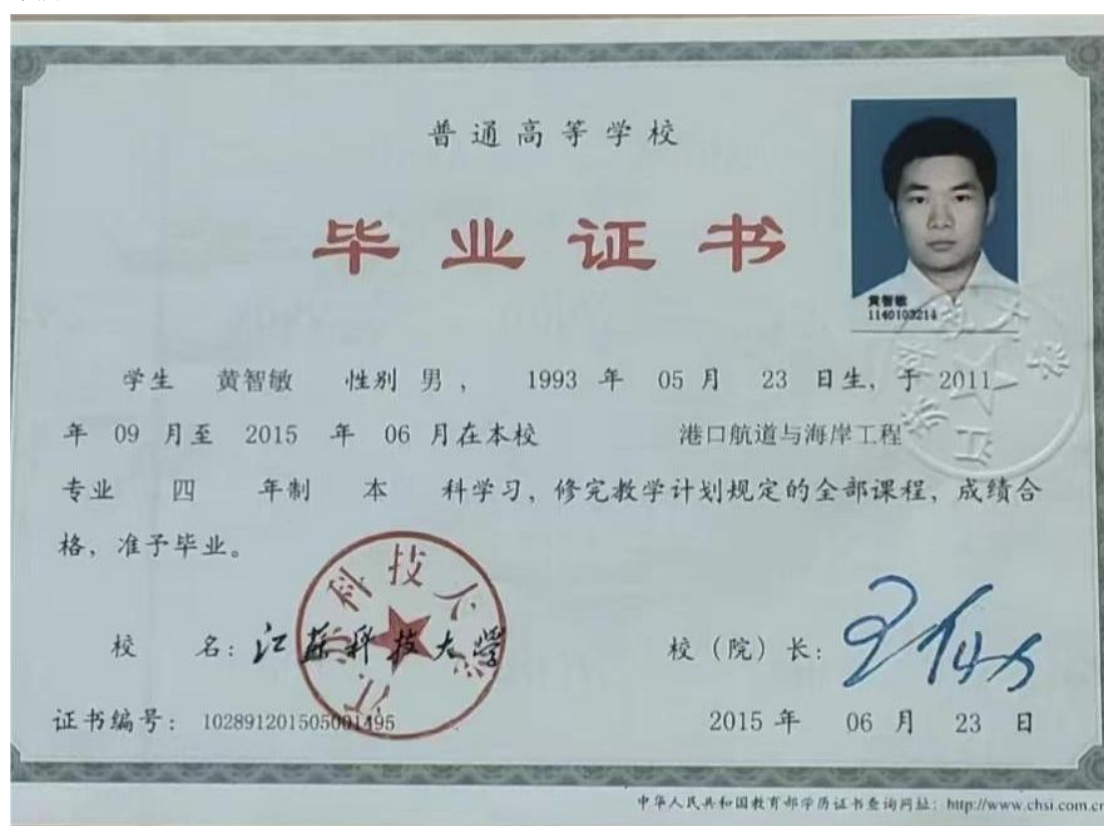 普通高等学校
毕业证书
黄智敏
1140103214
学生 黄智敏 性别 男 , 1993 年 05 月 23 日生, 于 2011
年 09 月至 2015 年 06 月在本校 港口航道与海岸工程
专业 四 年制 本 科学习, 修完教学计划规定的全部课程, 成绩合
格, 准予毕业。
校 名: 江苏科技大学
校（院）长:
证书编号: 102891201505001495
2015 年 06 月 23 日
中华人民共和国教育部学历证书查询网址: http://www.chsi.com.cn